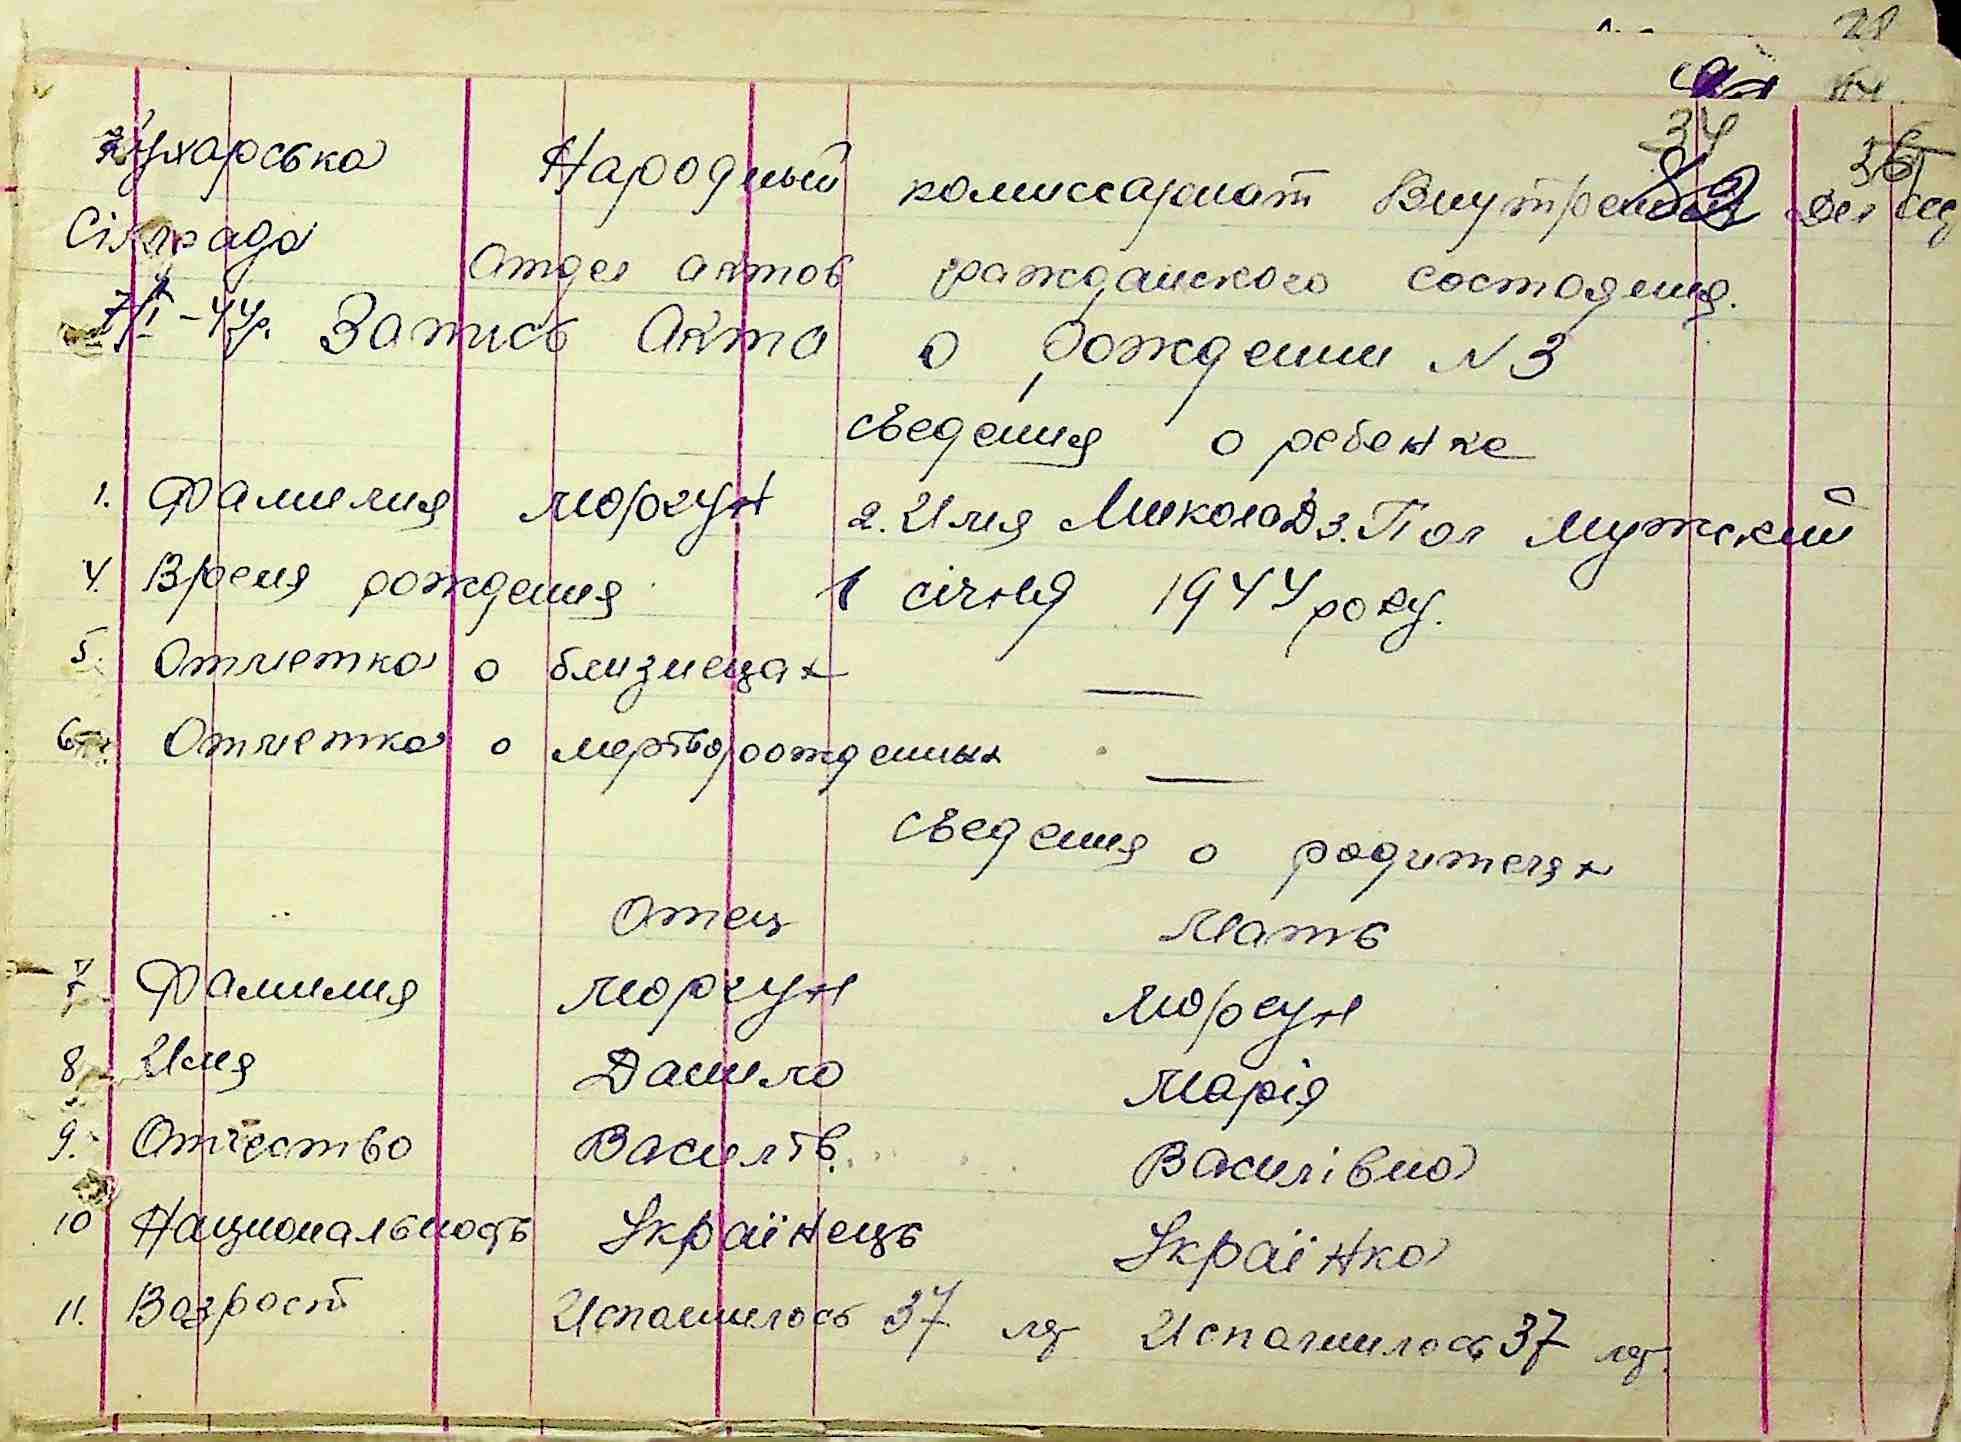 28
34
Кухарська Народный комиссариат Внутрених Дел ССР
Сільрада Отдел актов гражданского состояния.
7/I-44р. Запись Акта о рождении N 3
сведения о ребенке
1. Фамилия Моргун 2. Имя Микола 3. Пол Мужский
4. Время рождения 1 січня 1944 року.
5. Отметка о близнецах —
6. Отметка о мертворожденных —
сведения о родителях
Отец Мать
7 Фамилия Моргун Моргун
8 Имя Данило Марія
9. Отчество Василів. Василівна
10 Национальность Українець Українка
11. Возраст Исполнилось 37 лет Исполнилось 37 лет.